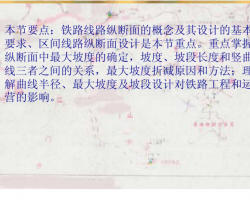 本节要点：铁路线路纵断面的概念及其设计的基本
要求、区间线路纵断面设计是本节重点。重点掌握
纵断面中最大坡度的确定，坡度、坡段长度和竖曲
线三者之间的关系，最大坡度折减原因和方法；理
解曲线半径、最大坡度及坡段设计对铁路工程和运
营的影响。